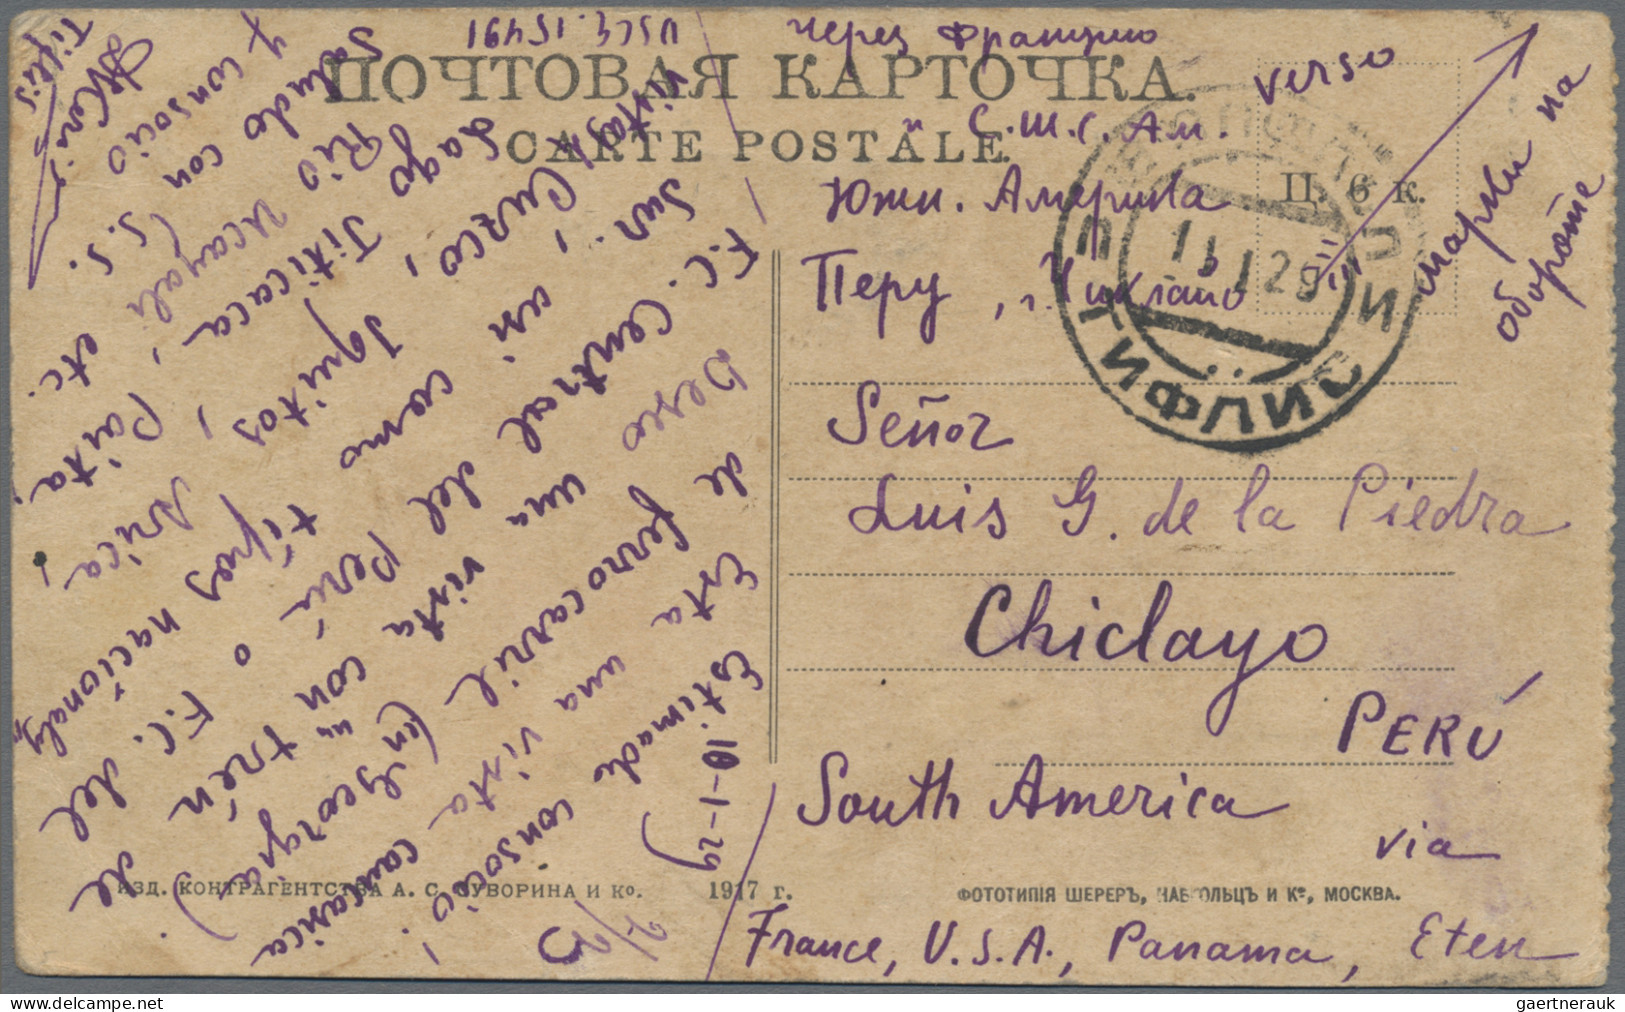 ПОЧТОВАЯ КАРТОЧКА.
CARTE POSTALE.
Ц. 6 к.
через Францию
и С.Ш.С.Ам.
Южн. Америка
Перу, г. Чиклайо
verso
марки на
обороте
ТИФЛИС
11 1 29
Señor
Luis G. de la Piedra
Chiclayo
PERÚ
South America
via
France, U.S.A., Panama, Eten
10-1-29
Estimado consocio!
Esta una vista caucasica
de ferrocarril (en Georgia).
Deseo un vista con trén de
F.C. Central del Perú o F.C. del
Sur. un como tipos nacionales,
Cuzco, Iquitos, Arica,
Lago Titicaca, Paita,
Rio Ucayali etc.
Saludo con S.S.
y consocio
Tiflis
ИЗД. КОНТРАГЕНТСТВА А. С. СУВОРИНА И Ко. 1917 г.
ФОТОТИПІЯ ШЕРЕРЪ, НАБГОЛЬЦЪ И Ко, МОСКВА.
gaertnerauk // delcampe.net